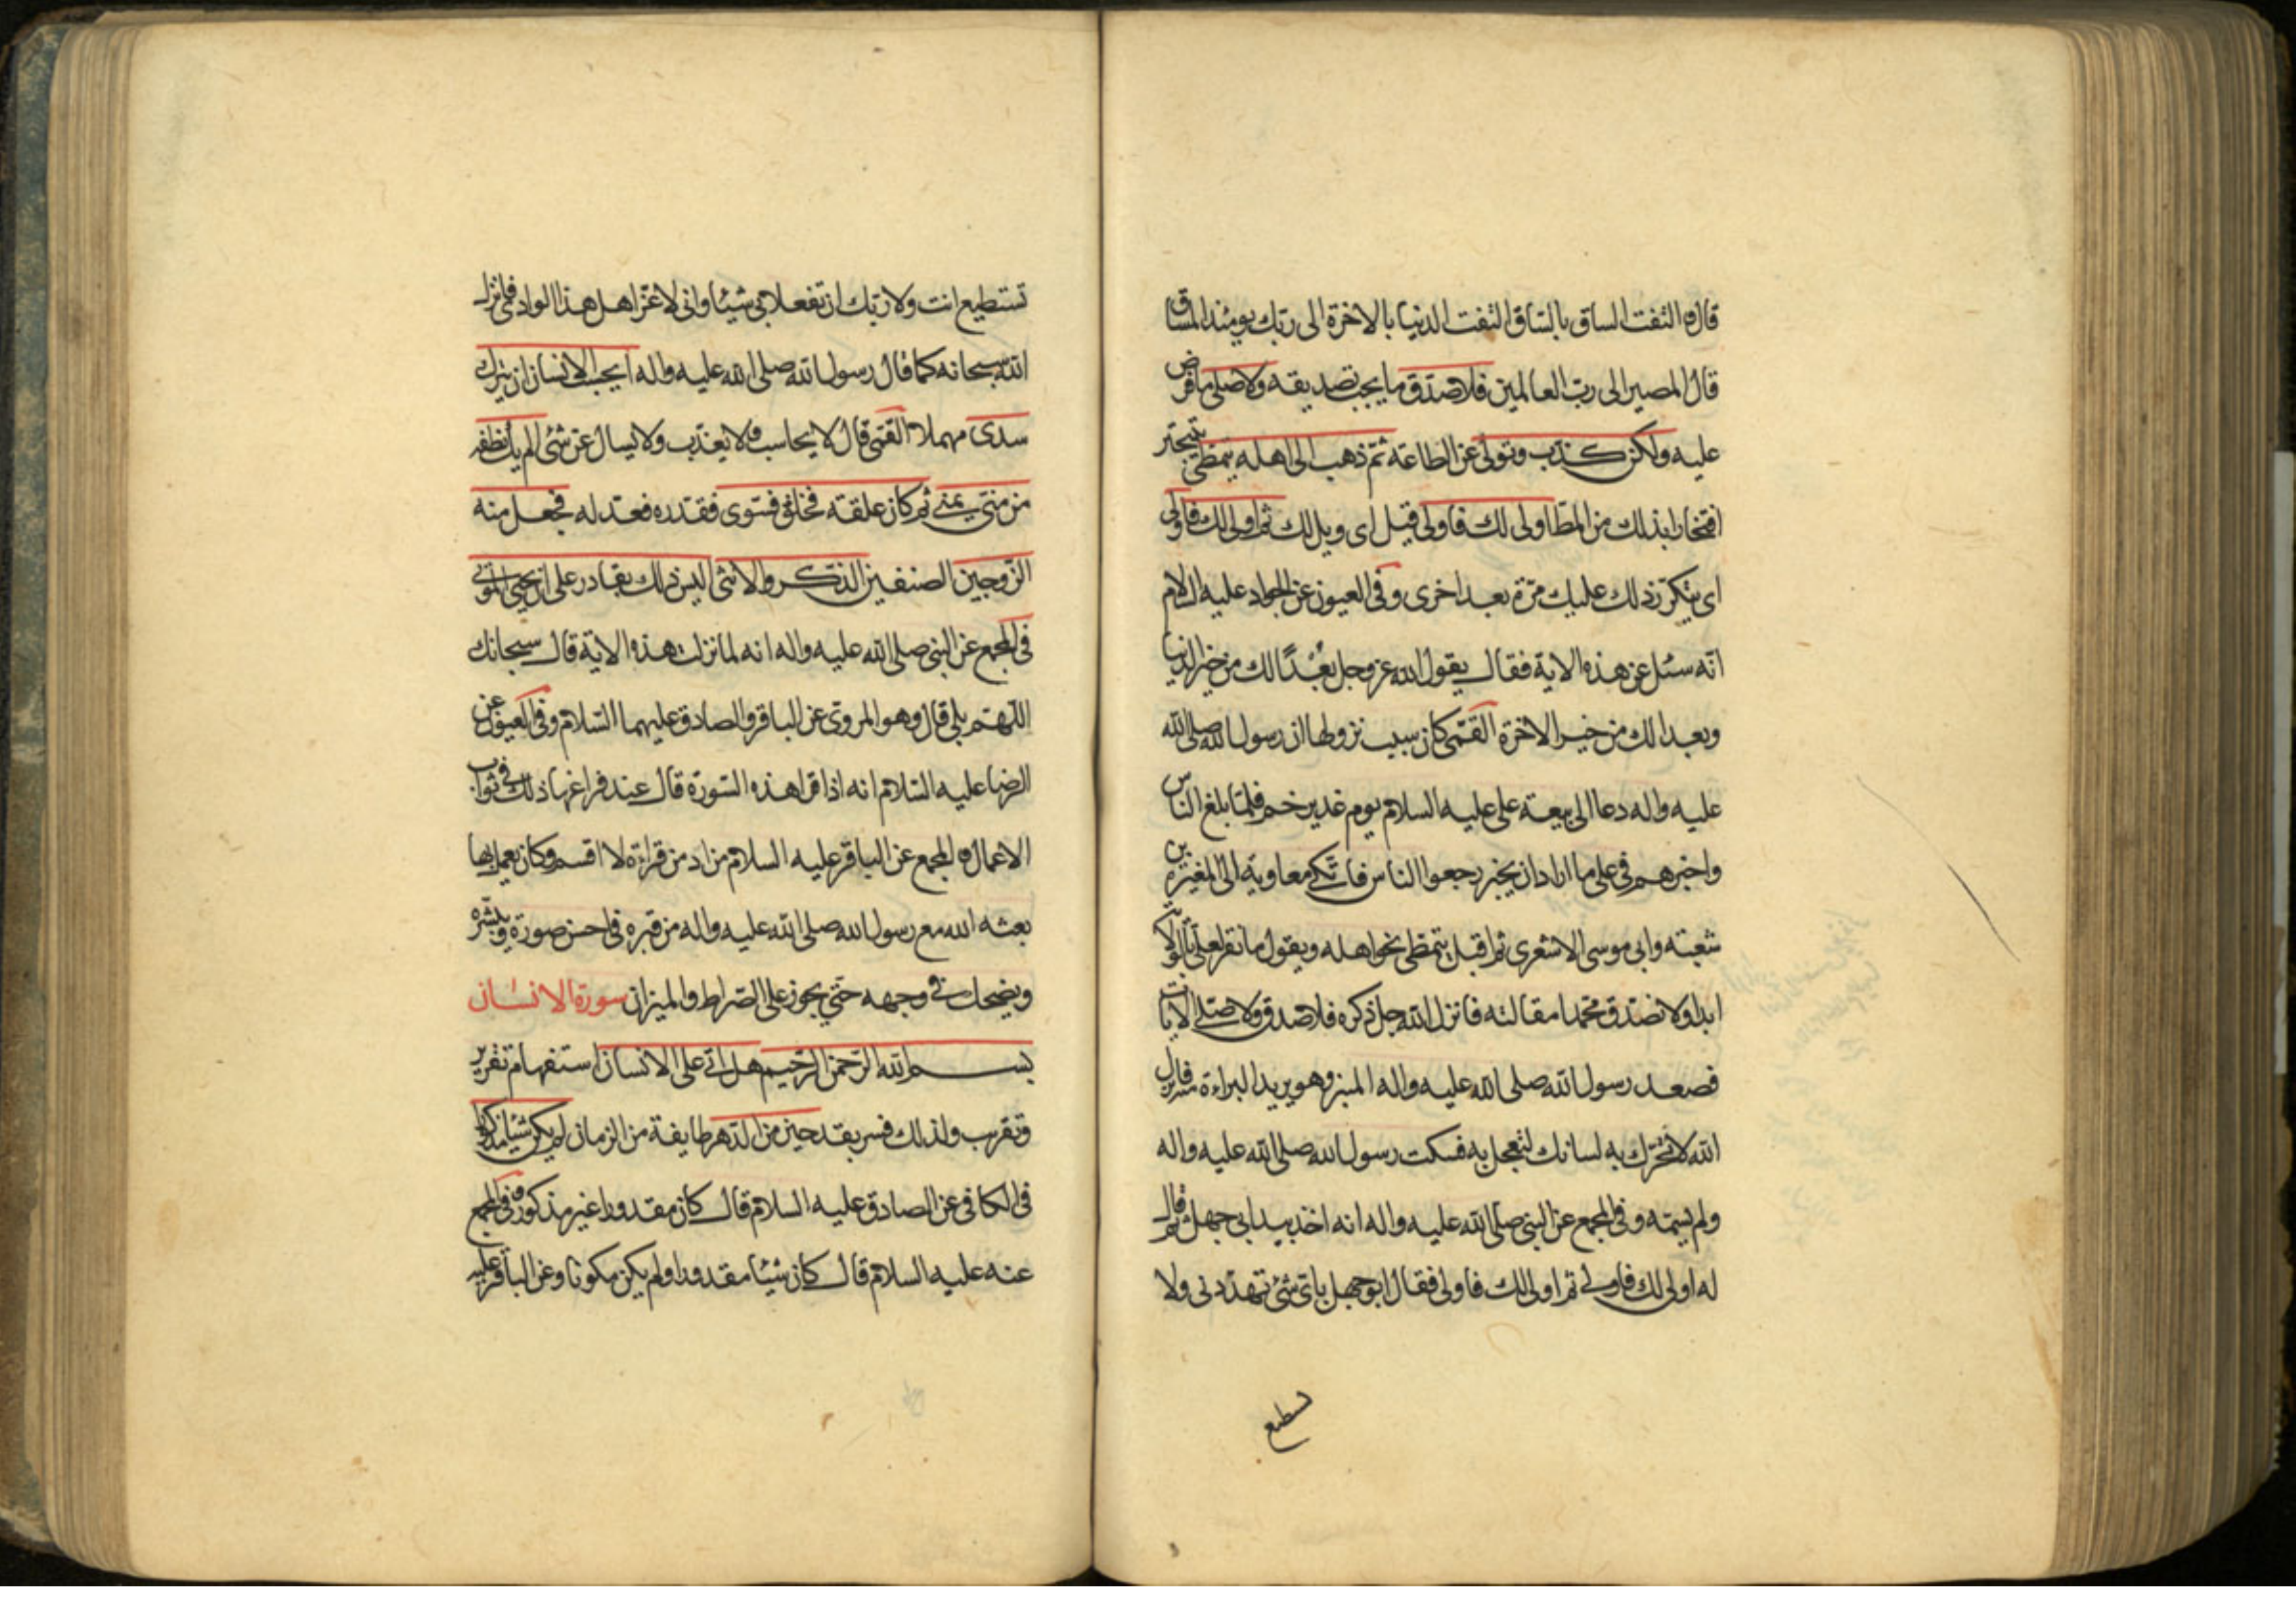 قال و التفت الساق بالساق التفت الدنيا بالاخرة الى ربك يومئذ المساق
قال المصير الى رب العالمين فلا صدق ما يجب تصديقه ولا صلى ما فرض
عليه ولكن كذب وتولى عن الطاعة ثم ذهب الى اهله يتمطى يتبختر
افتخارا بذلك من المط اولى لك فاولى قيل اى ويل لك ثم اولى لك فاولى
اى يتكرر ذلك عليك مرة بعد اخرى وفى العيون عن الجواد عليه السلام
انه سئل عن هذه الاية فقال يقول الله عز وجل بعدا لك من خير الدنيا
وبعدا لك من خير الاخرة القمى كان سبب نزولها ان رسول الله صلى الله
عليه واله دعا الى بيعة على عليه السلام يوم غدير خم فلما بلغ الناس
واخبرهم فى على ما اراد ان يخبر رجعوا الناس فاتكى معاوية الى المغيرة بن
شعبته وابى موسى الاشعرى ثم اقبل يتمطى نحو اهله ويقول ما نقر لعلى بالولا
ابدا ولا نصدق محمدا مقالته فانزل الله جل ذكره فلا صدق ولا صلى الايات
فصعد رسول الله صلى الله عليه واله المنبر وهو يريد البراءة منه فانزل
الله لا تحرك به لسانك لتعجل به فسكت رسول الله صلى الله عليه واله
ولم يسمه وفى المجمع عن النبى صلى الله عليه واله انه اخذ بيد ابى جهل ثم قال
له اولى لك فاولى ثم اولى لك فاولى فقال ابو جهل باى شئ تهددنى ولا
تستطيع
تستطيع انت ولا ربك ان تفعلا بى شيئا وانى لاعز اهل هذا الوادى فانزل
الله سبحانه كما قال رسول الله صلى الله عليه واله ايحسب الانسان ان يترك
سدى مهملا القمى قال لا يحاسب ولا يعذب ولا يسال عن شئ الم يك نطفه
من منى يمنى ثم كان علقة فخلق فسوى فقدره فعدله فجعل منه
الزوجين الصنفين الذكر والانثى اليس ذلك بقادر على ان يحيى الموتى
فى المجمع عن النبى صلى الله عليه واله انه لما نزلت هذه الاية قال سبحانك
اللهم بلى قال وهو المروى عن الباقر والصادق عليهما السلام وفى العيون عن
الرضا عليه السلام انه اذا قرا هذه السورة قال عند فراغها ذلك فى ثواب
الاعمال و المجمع عن الباقر عليه السلام من ادمن قراءة لا اقسم وكان يعمل بها
بعثه الله مع رسول الله صلى الله عليه واله من قبره فى احسن صورة ويبشره
ويضحك فى وجهه حتى يجوز على الصراط والميزان سورة الانسان
بسم الله الرحمن الرحيم هل اتى على الانسان استفهام تقرير
وتقريب ولذلك فسر بقد حين من الدهر طايفة من الزمان لم يكن شيئا مذكورا
فى الكافى عن الصادق عليه السلام قال كان مقدورا غير مذكور وفى المجمع
عنه عليه السلام قال كان شيئا مقدورا ولم يكن مكونا وعن الباقر عليه